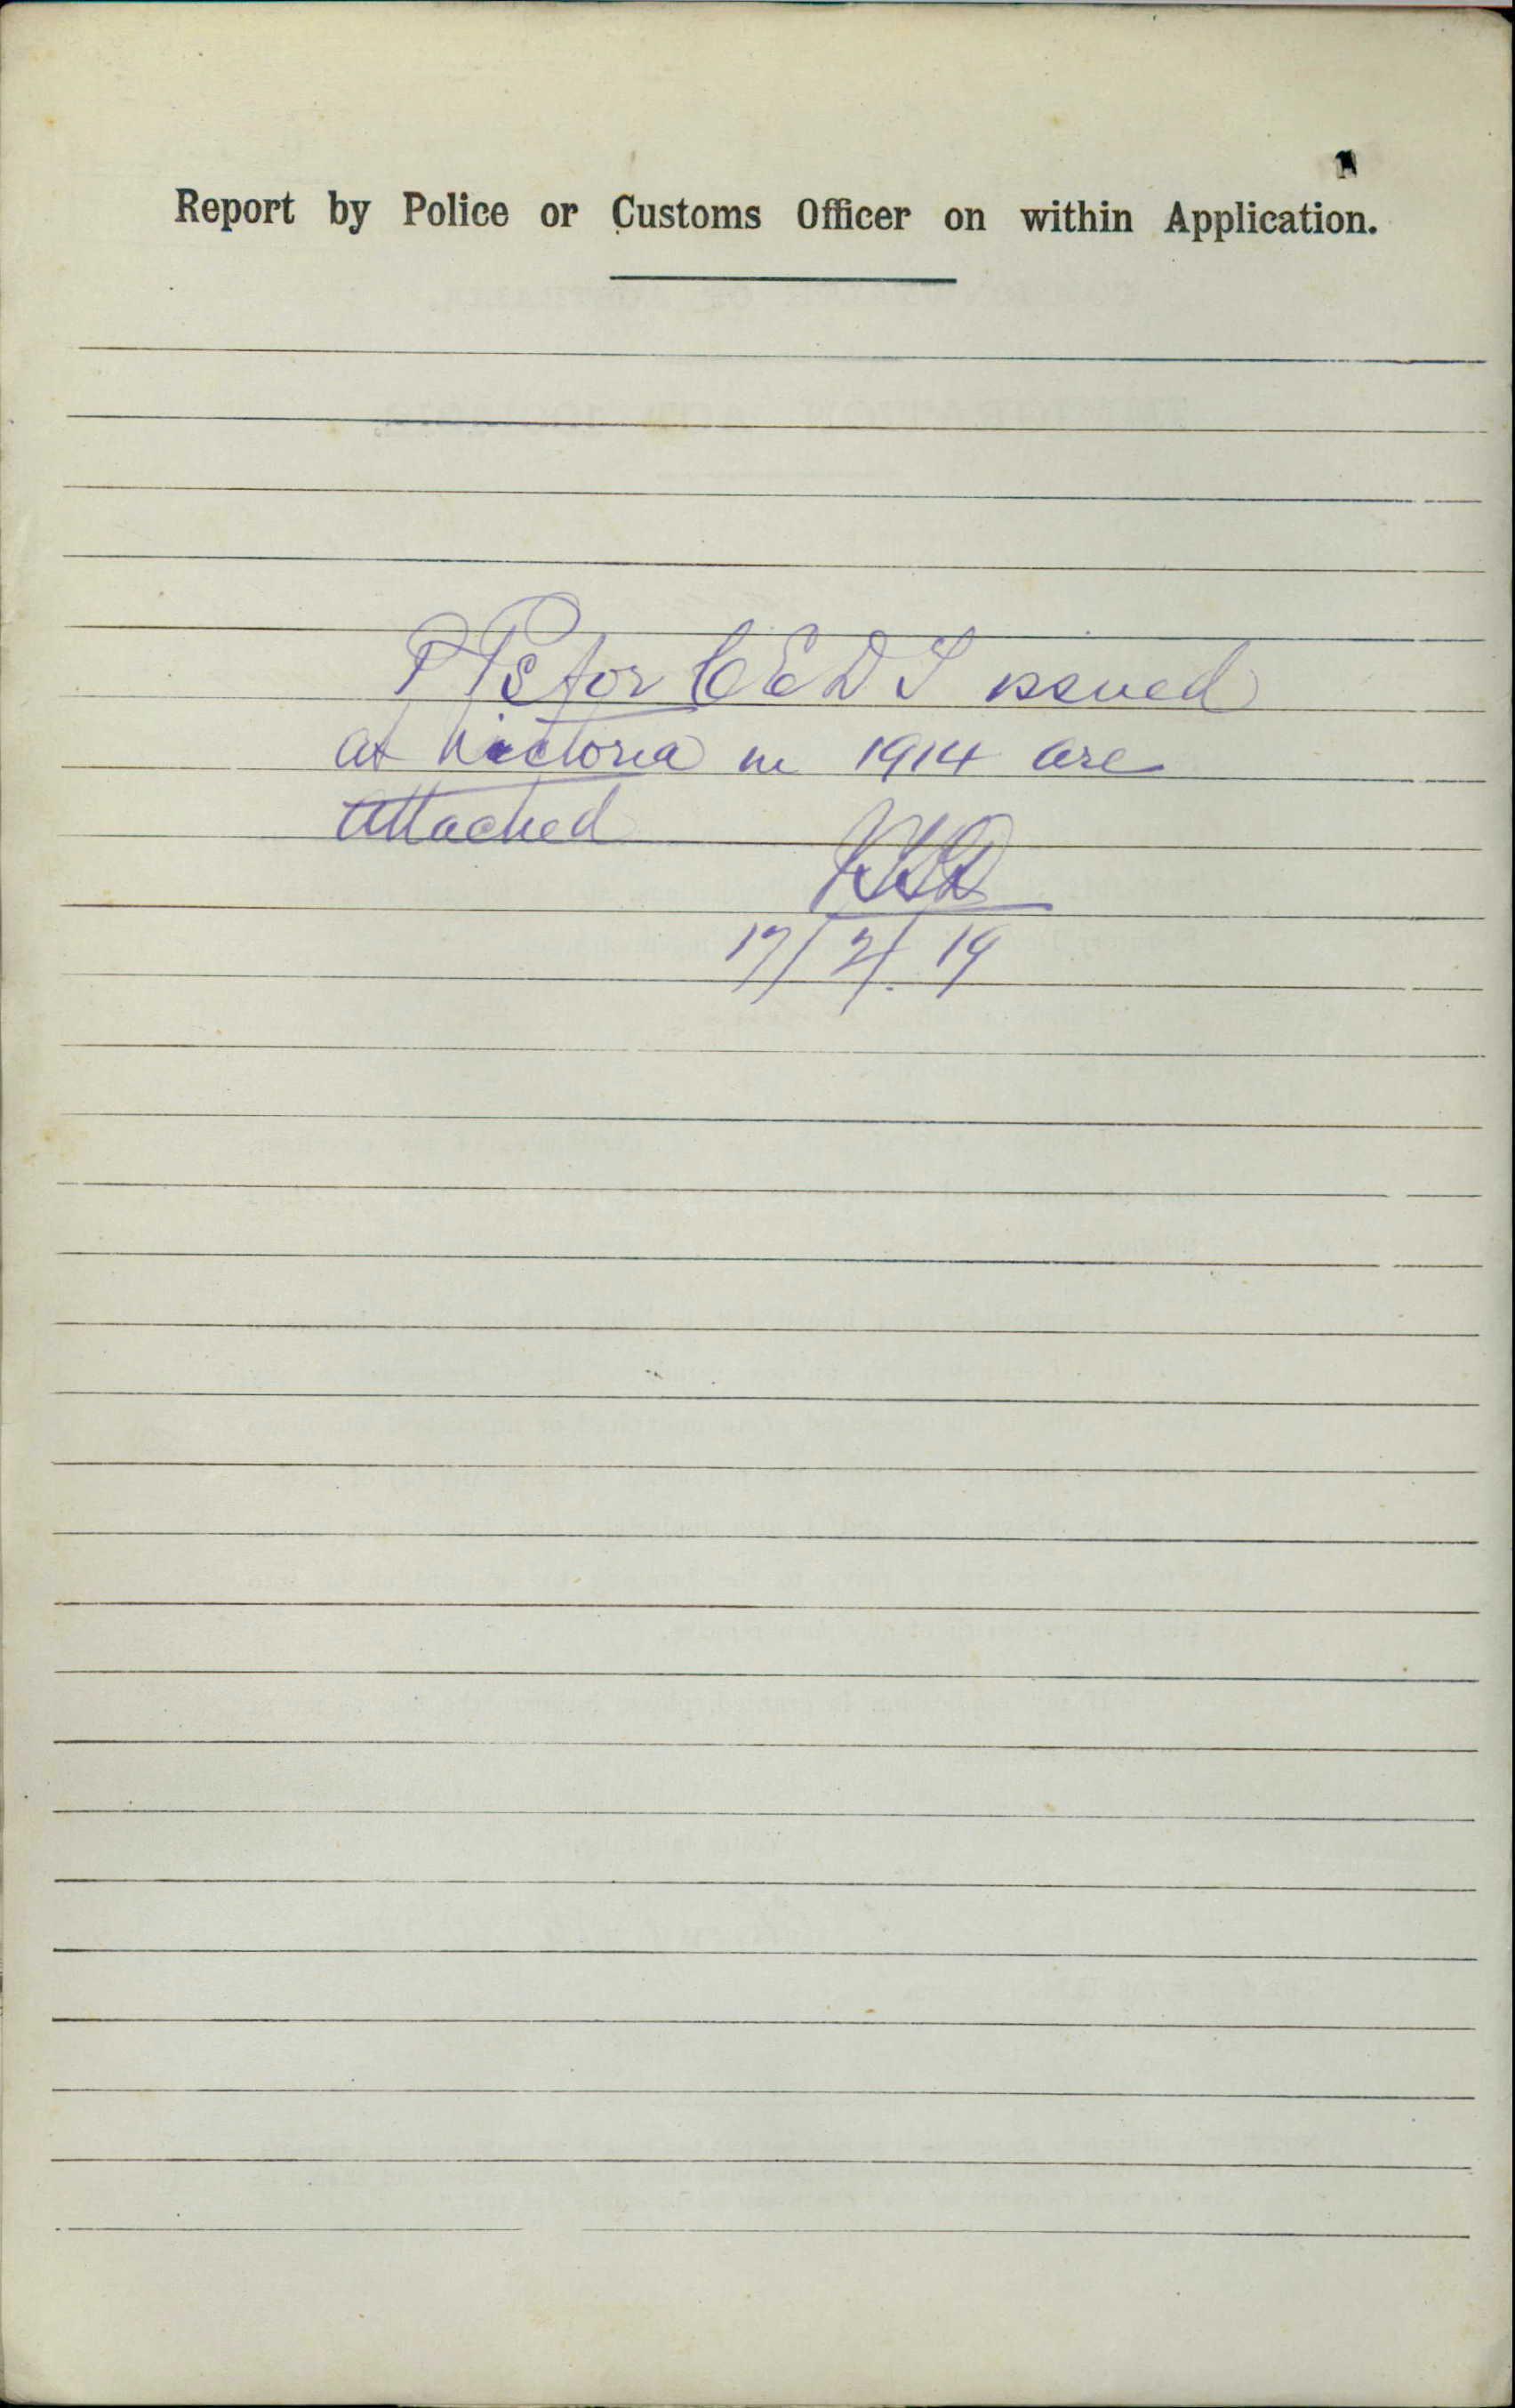 Report by Police or Customs Officer on within Application.
P Ps for C E D T issued
at Victoria in 1914 are
attached
17/2/19